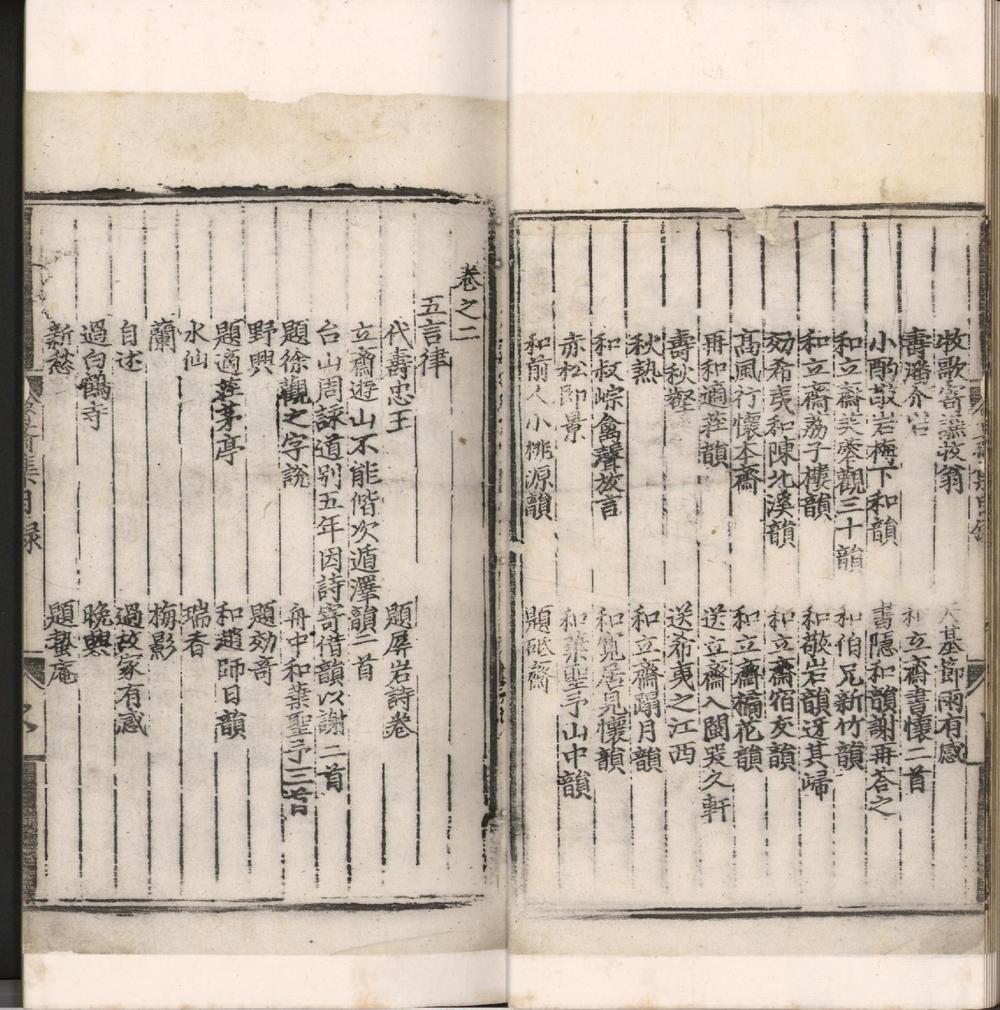 牧歌寄謙牧翁 天基節雨有感
壽潘介岩 和立齋書懷二首
小酌敬岩梅下和韻 書隱和韻謝再荅之
和立齋芙蓉觀三十韻 和伯兄新竹韻
和立齋荔子樓韻 和敬岩韻迓其歸
効希夷和陳北溪韻 和立齋宿友韻
高風行懷本齋 和立齋橘花韻
再和適莊韻 送立齋入閩哭久軒
壽秋壑 送希夷之江西
秋熱 和立齋踏月韻
和叔崇禽聲放言 和寬居見懷韻
赤松即景 和葉聖予山中韻
和前人小桃源韻 題砥齋
卷之二
五言律
代壽忠王 題屏岩詩卷
立齋遊山不能偕次遁澤韻二首
台山周詠道別五年因詩寄借韻以謝二首
題徐觀之字說 舟中和葉聖予三首
野興 題効奇
題適莊茅亭 和趙師日韻
水仙 瑞香
蘭 梅影
自述 過故家有感
過白鶴寺 晚興
新愁 題蟄庵
魯齋集目録